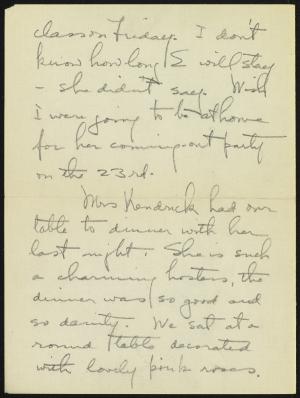 class on Friday. I don't
know how long E will stay
- she didn't say. Wish
I were going to be at home
for her coming-out party
on the 23rd.
Mrs Kendrick had our
table to dinner with her
last night. She is such
a charming hostess, the
dinner was so good and
so dainty. We sat at a
round table decorated
with lovely pink roses.